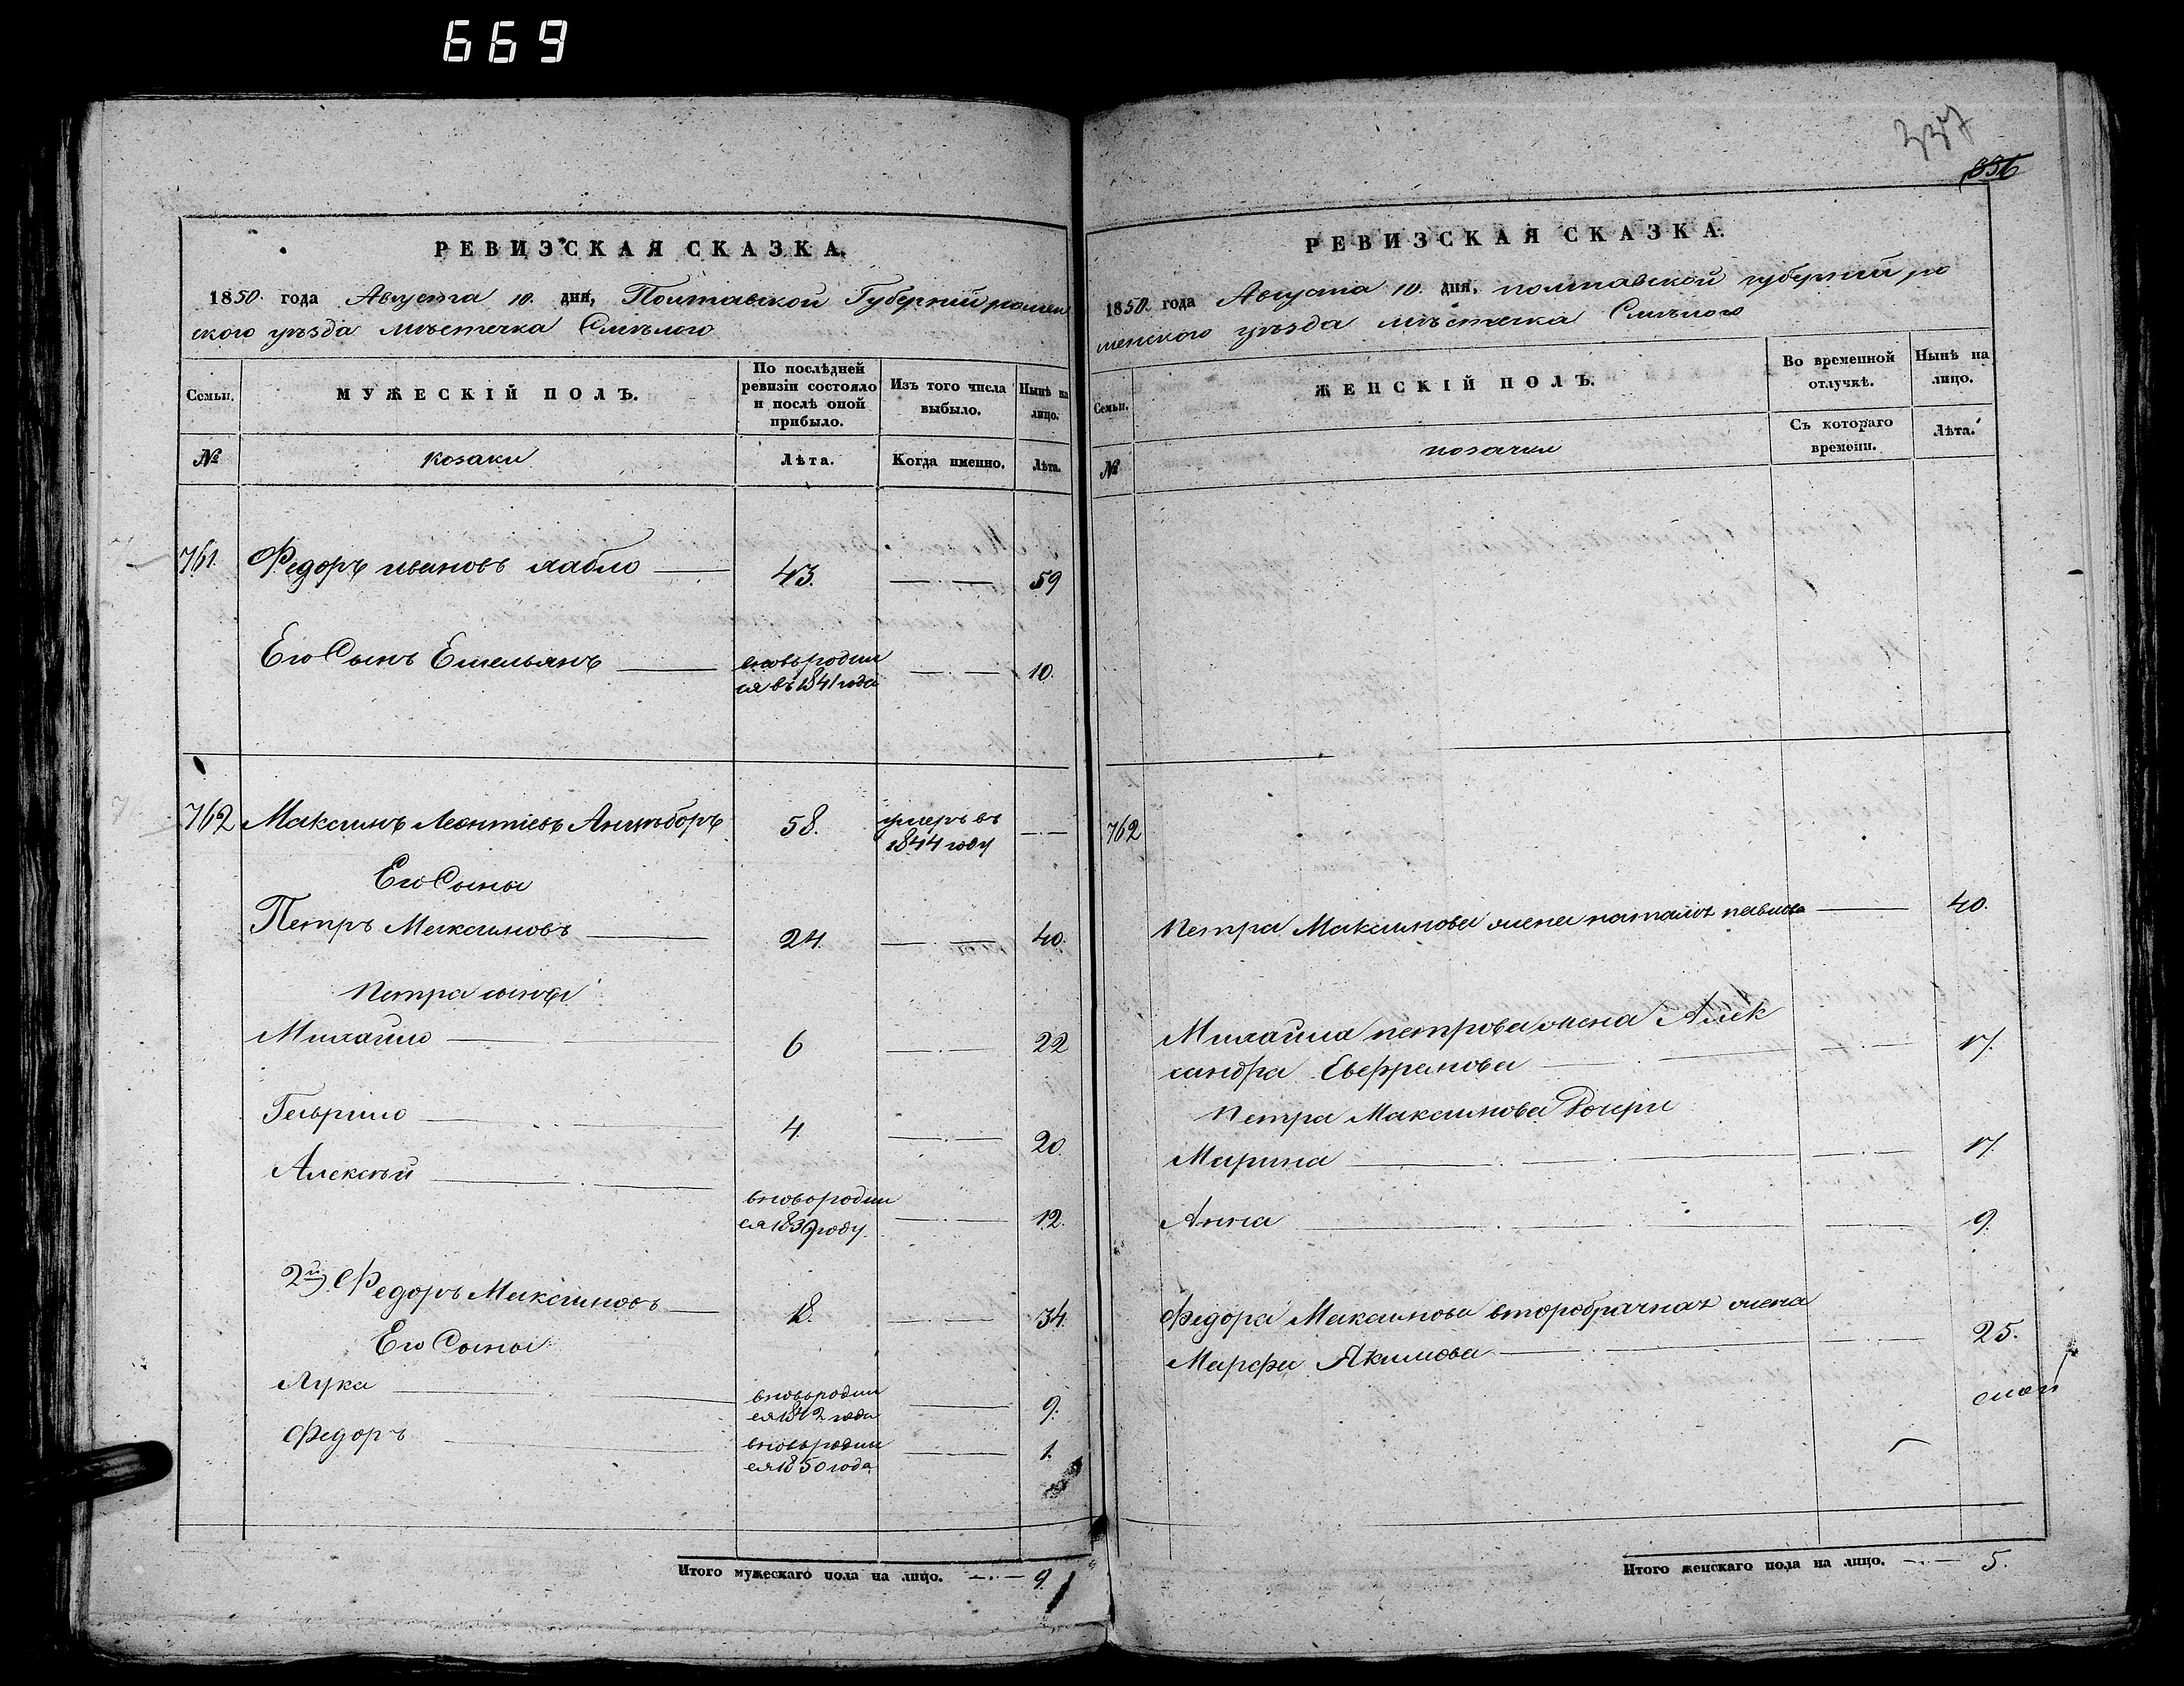 669
337
336
РЕВИЗСКАЯ СКАЗКА.
1850. года Августа 10. дня, Полтавской Губернии ромен
ского уѣзда мѣстечка Смѣлого
Семьи.
МУЖЕСКІЙ ПОЛЪ.
По послѣдней ревизіи состояло и послѣ оной прибыло.
Изъ того числа выбыло.
Нынѣ на лицо.
№
козаки
Лѣта.
Когда именно.
Лѣта.
761. Федоръ ивановъ 43. 59
Его Сынъ Емельянъ вновь родил 10.
ся въ 1841 года
762 Максимъ Леонтіевъ 58. умеръ въ
1844 году
Его Сыны
Петръ Максимовъ 24. 40.
Петра сыны
Михайло 6 22
Гаврило 4. 20.
Алексѣй вновь родил 12.
ся 1839 году
2й Федоръ Максимовъ 18. 34.
Его Сыны
Лука вновь родил 9.
ся 1842 года
Федоръ вновь родил 1.
ся 1850 года
Итого мужескаго пола на лицо. 9.
РЕВИЗСКАЯ СКАЗКА.
1850. года Августа 10. дня, полтавской губернии ро
менского уѣзда мѣстечка Смѣлого
Семьи.
ЖЕНСКІЙ ПОЛЪ.
Во временной отлучкѣ.
Нынѣ на лицо.
№
козачки
Съ котораго времени.
Лѣта.
762
Петра Максимова жена наталя павлова 40.
Михайла петрова жена Алек
сандра 17.
Петра Максимова Дочери
Марина 17.
Анна 9.
Федора Максимова второбрачная жена
Марфа Якимова 25.
Итого женскаго пола на лицо. 5.